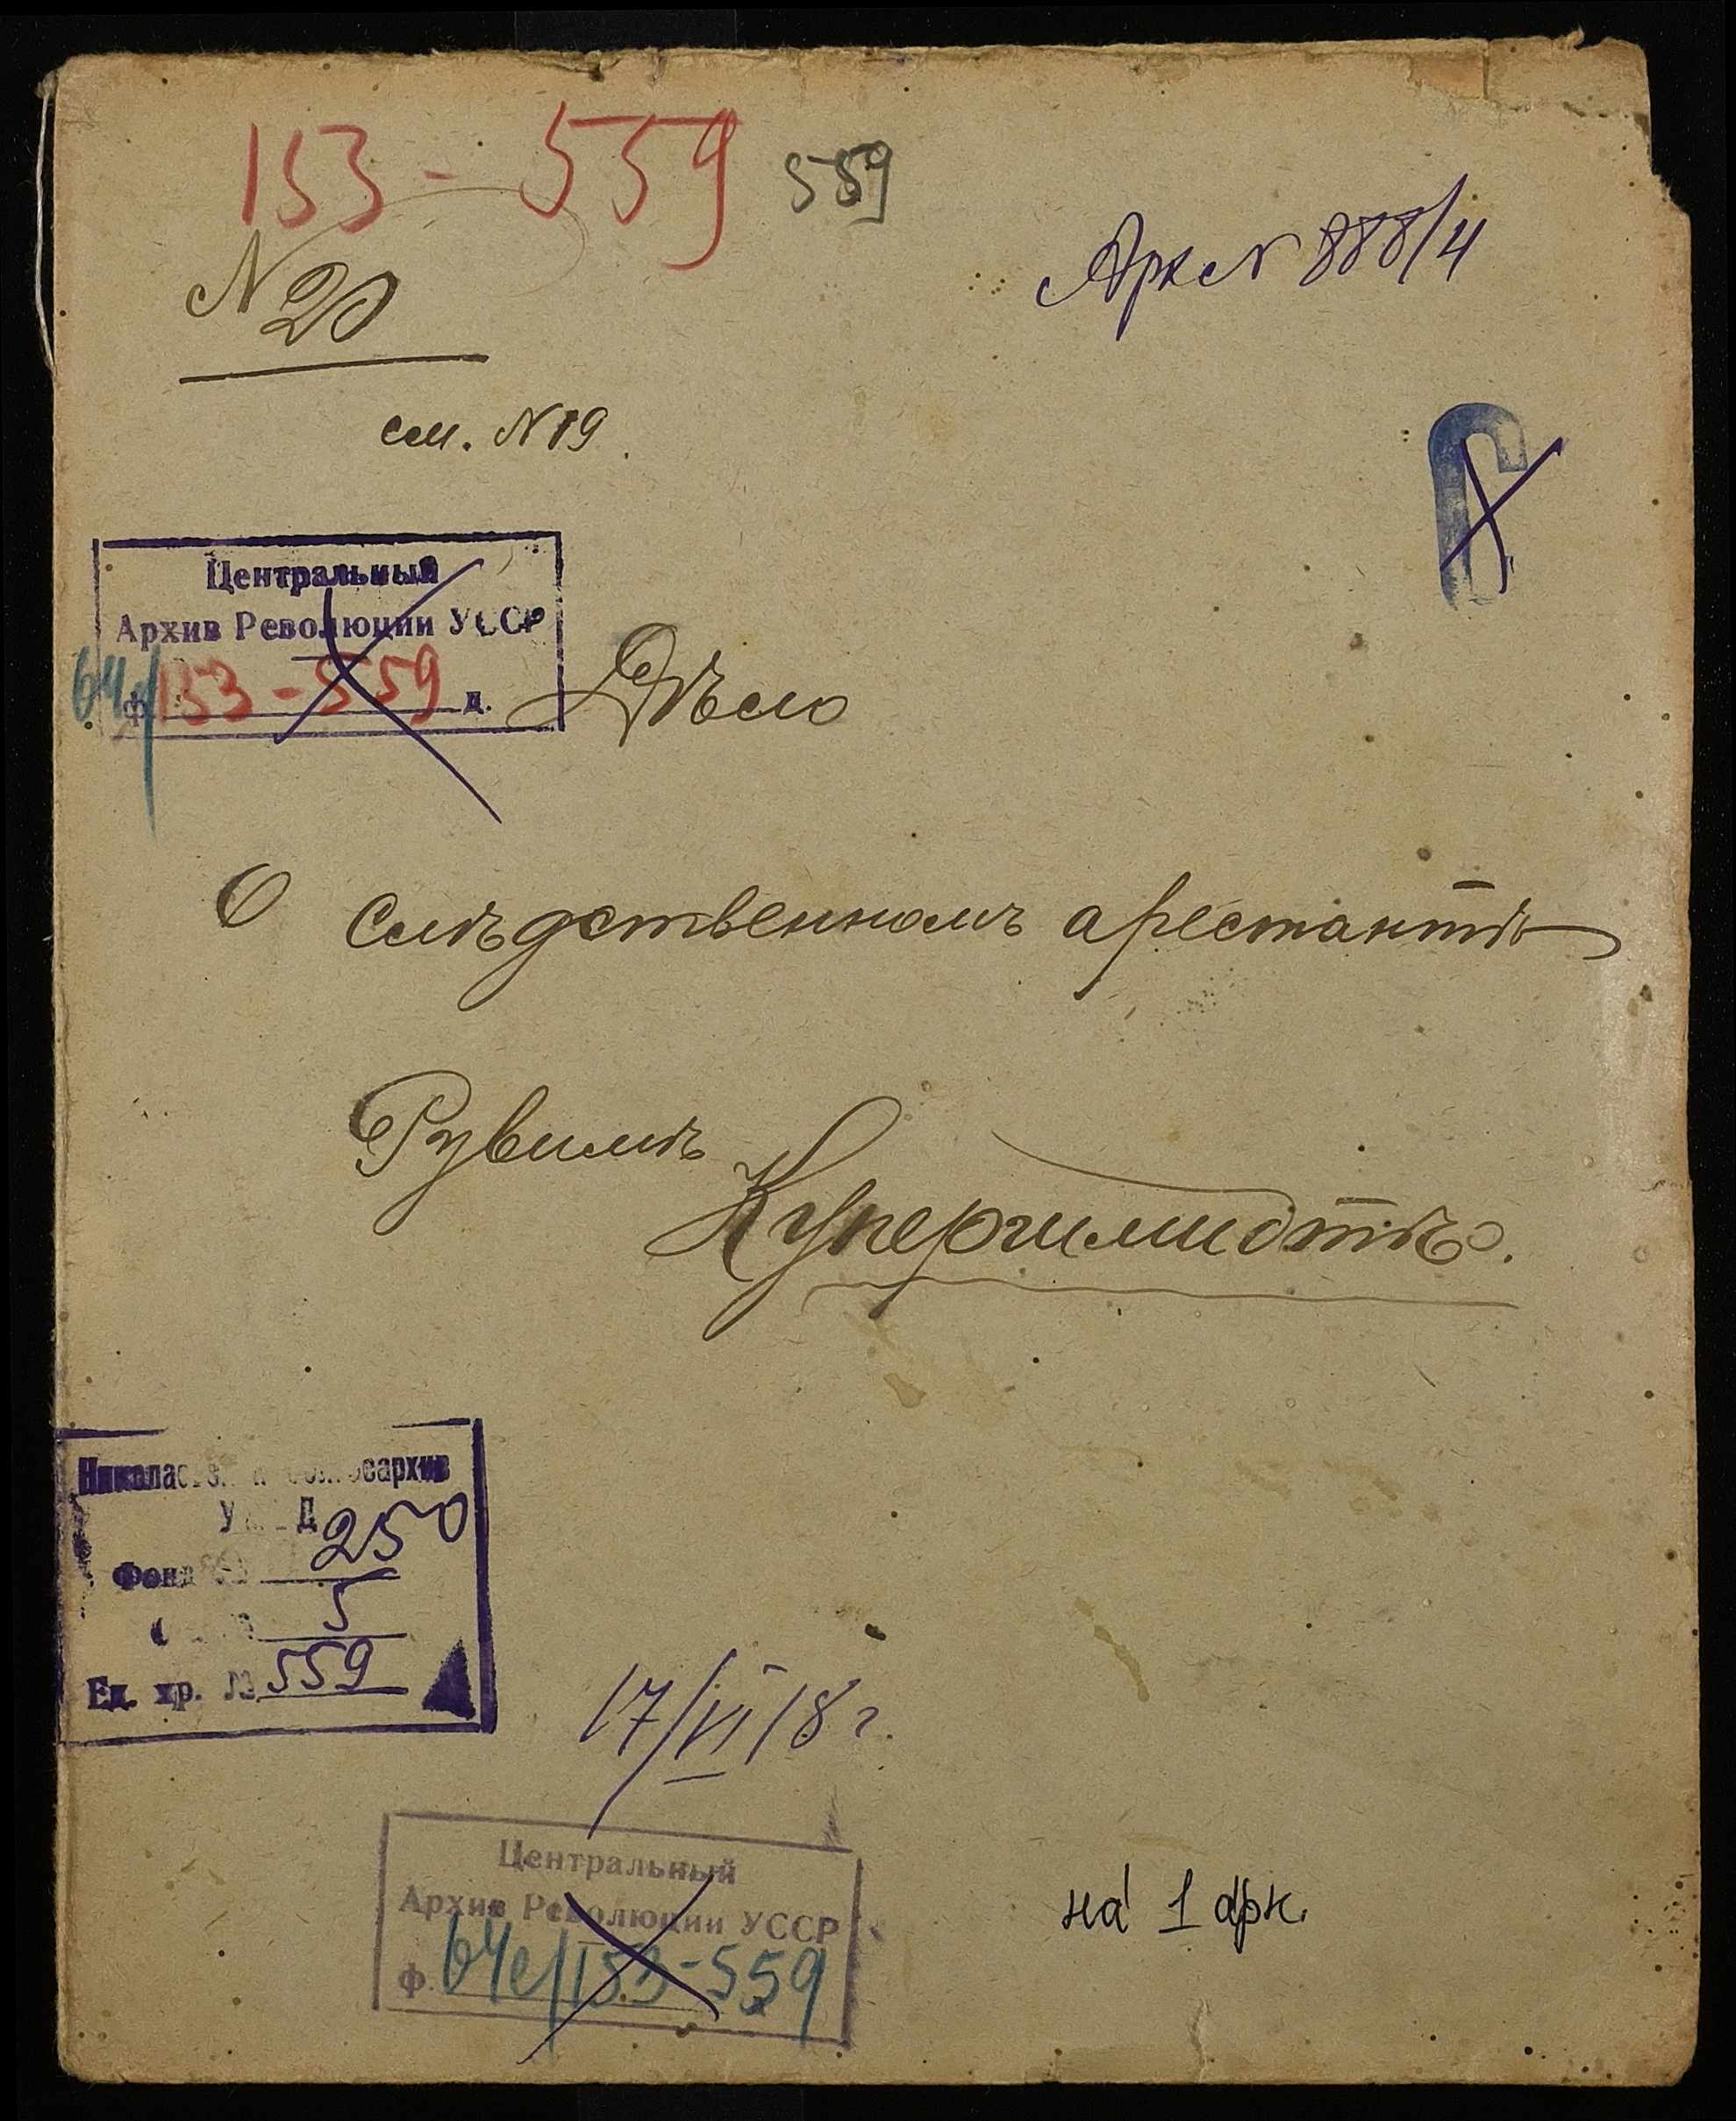 153 - 559 559
Арк N 888/4
N 20
см. N 19.
Центральный
Архив Революции УССР
64е/
ф. 153 - 559 д.
Дѣло
О слѣдственномъ арестантѣ
Рувимѣ
Купершмидтѣ.
250
Фонд
5
Ед. хр. № 559
17/VI 18 г.
Центральный
Архив Революции УССР
ф. 64е/153-559
на 1 арк.